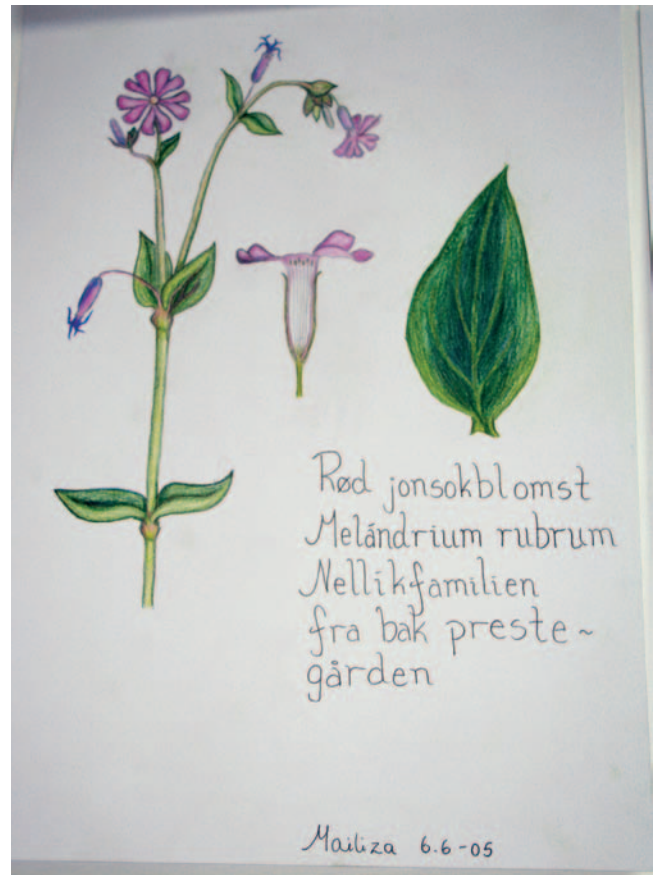 Rød jonsokblomst
Melándrium rubrum
Nellikfamilien
fra bak preste~
gården
Mailiza 6.6-05